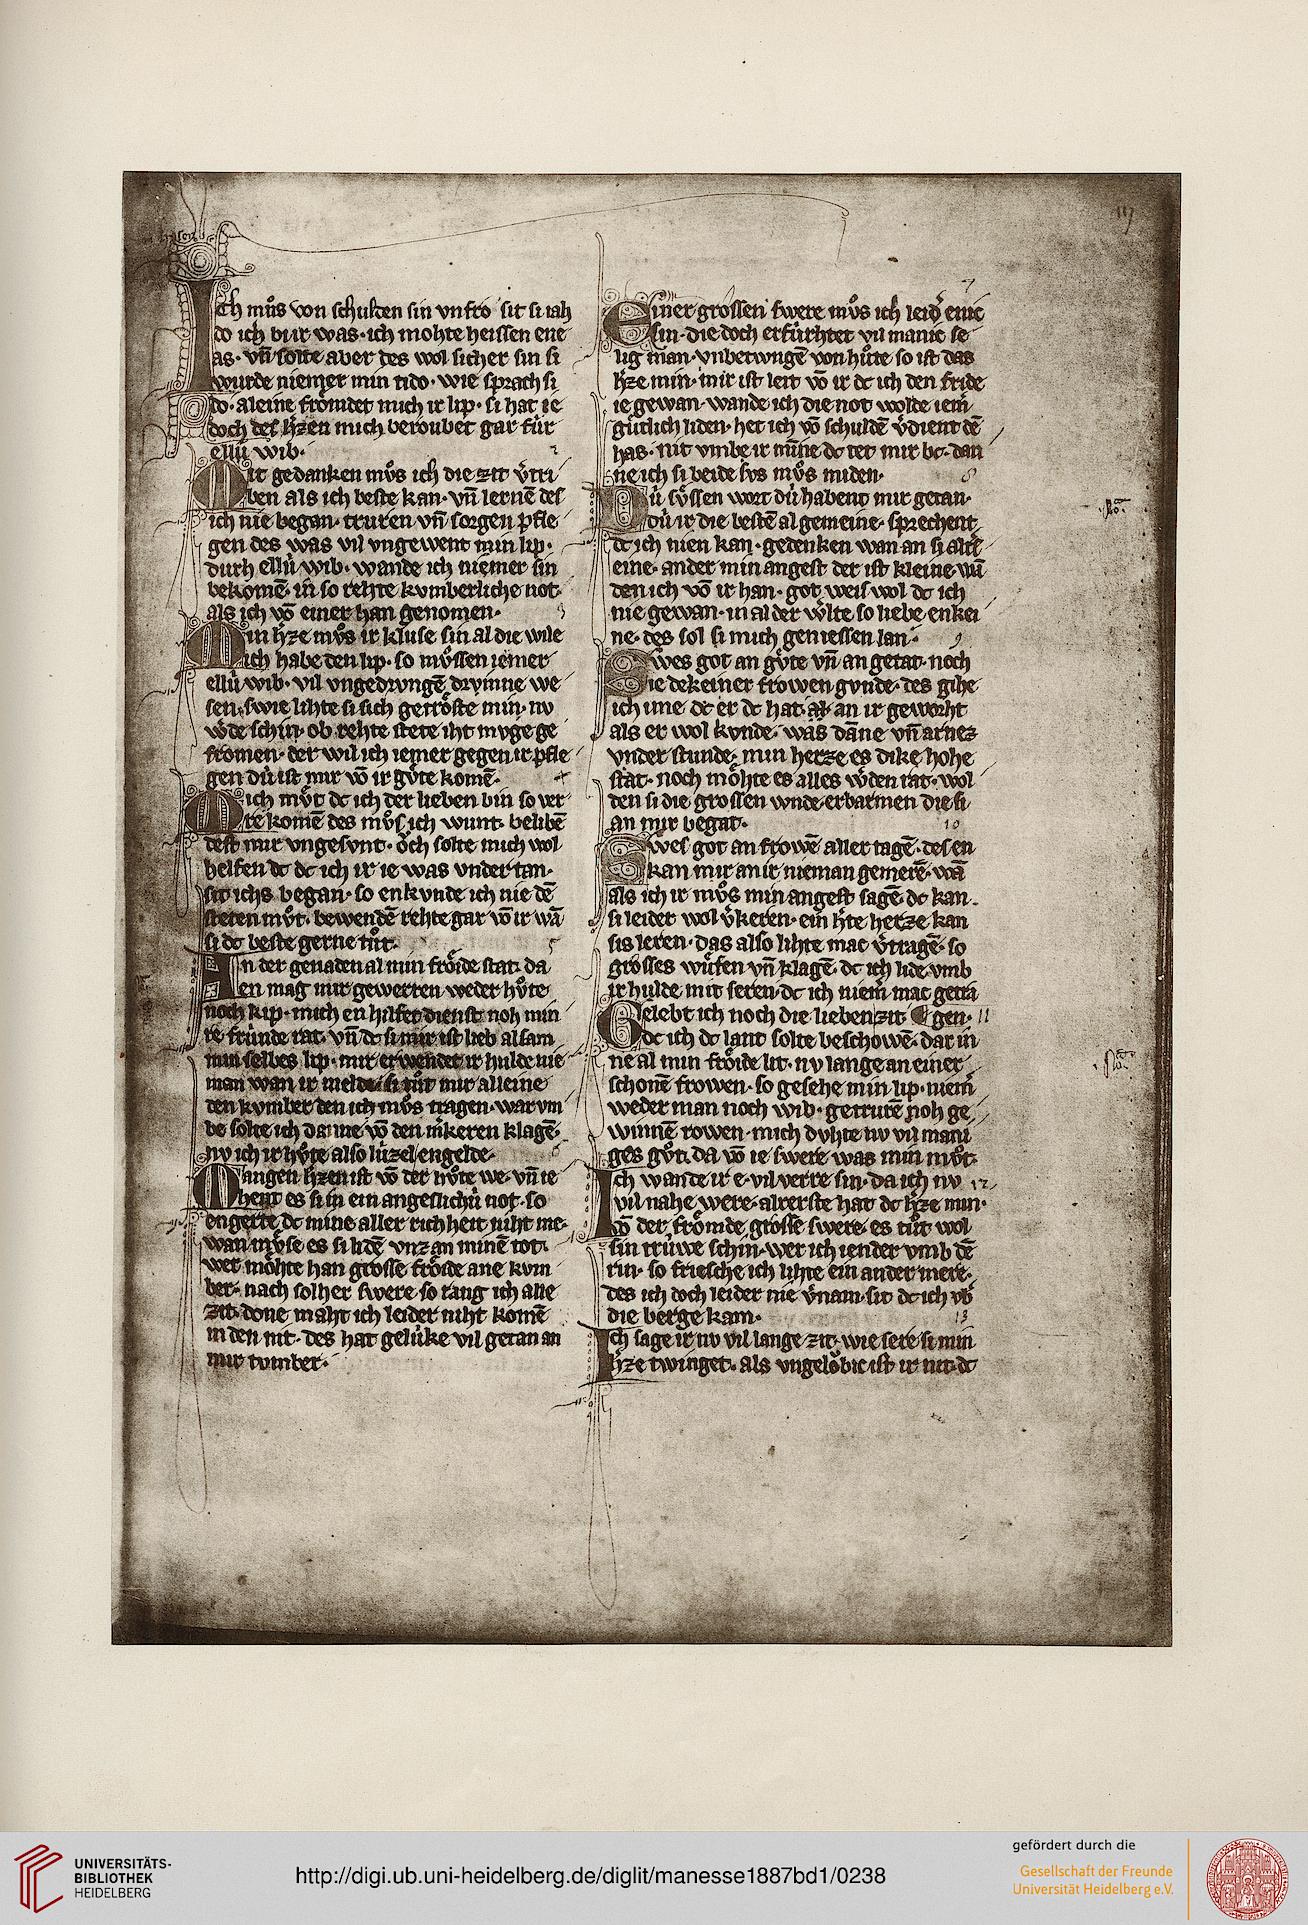 Ich muͦs von schulden sin vnfro sit si iah
do ich bi ir was · ich mohte heissen ene
as · vn̄ solte aber des wol sicher sin si
wurde niemer min tido · wie sprach si
do · aleine froͤmdet mich ir lip · si hat ie
doch des h̾zen mich beroubet gar fúr
ellú wib ·
Mit gedanken muͦs ich die zit v̾tri
ben als ich beste kan · vn̄ lernē des
ich nie began · truren vn̄ sorgen pfle
gen des was vil vngewent min lip ·
durh ellú wib · wande ich niemer sin
bekomē · in so rehte kvmberliche not ·
als ich vō einer han genomen ·
Min h̾ze muͦs ir kluse sin al die wile
ich habe den lip · so muͤssen iemer
ellú wib · vil vngedrvngē drinne we
sen · swie lihte si sich getroͤste min · nv
w̾de schin · ob rehte stete iht mvge ge
fromen · der wil ich iemer gegen ir pfle
gen dú ist mir vō ir guͤte komē ·
Mich muͤt dc ich der lieben bin so ver
re komē des muͦs ich wunt · belibē
dest mir vngesvnt · oͮch solte mich wol
helfen dc dc ich ir ie was vndertan ·
sit ichs began · so enkvnde ich nie dē
steten muͦt · bewendē rehte gar vō ir wā
si dc beste gerne tuͦt ·
An der genaden al min froͤide stat · da
en mag mir gewerren weder huͦte
noch kip · mich en hilfet dienst noh min
re frúnde rat · vn̄ dc si mir ist lieb alsam
min selbes lip · mir erwendet ir hulde nie
man wan ir selbe si tuͦt mir alleine
den kvmber den ich muͦs tragen · war vm
be solte ich danne vō den m̾keren klagē ·
nv ich ir huͦte also lúzel engelde ·
Mangen h̾zen ist vō der huͦte we · vn̄ ie
hent es si in ein angeslichú not · so
engerte dc mine aller richheit niht me ·
wan muͤse es si lidē vnz an minē tot ·
wer moͤhte han grosse froͤide ane kvm
ber · nach solher swere so rang ich alle
zit · done maht ich leider niht komē
in den nit · des hat gelúke vil getan an
mir tvmber ·
7
Einer grossen swere muͦs ich leid̾ enic
sin · die doch erfúrhtet vil manic se
lig man · vnbetwngē von huͦte so ist das
h̾ze min · mir ist leit vō ir dc ich den fride
ie gewan · wande ich die not wolde iem̾
guͤtlich liden · het ich vō schuldē v̾dient dē
has · nit vmbe ir minne dc tet mir bc · dan
ne ich si beide svs muͦs miden ·
8
Dú suͤssen wort dú habent mir getan ·
dú ir die bestē al gemeine · sprechent
dc ich nien kan · gedenken wan an si alt̾s
eine · ander min angest der ist kleine wā
den ich vō ir han · got weis wol dc ich
nie gewan · in al der w̾lte so liebe enkei
ne · des sol si mich geniessen lan ·
9
Swes got an guͤte vn̄ an getat · noch
ie dekeiner frowen gvnde · des gihe
ich ime dc er dc hat · an ir geworht
als er wol kvnde · was dāne vn̄ arnez
vnder stunde · min herze es dike hohe
stat · noch moͤhte es alles w̾den rat · wol
den si die grossen wnde · erbarmen die si
an mir begat ·
10
Swes got an frowē aller tagē · des en
kan mir an ir nieman gemerē · wā
als ich ir muͦs min angest sagē · dc kan
si leider wol v̾keren · ein h̾te herze kan
sis leren · das also lihte mac v̾tragē · so
grosses wuͤfen vn̄ klagē · dc ich lide vmb
ir hulde mit seren · dc ich niem̾ mac getra
Gelebt ich noch die lieben zit ¶ gen · 11
dc ich dc lant solte beschowē · dar in
ne al min froͤide lit · nv lange an einer
schonē frowen · so gesehe min lip · niem̾
weder man noch wib · getrurē noh ge
winnē rowen · mich dvhte nv vil mani
ges guͦt · da vō ie swere was min muͦt ·
Ich wande ir e · vil verre sin · da ich nv 12
vil nahe were · alrerste hat dc h̾ze min ·
vō der froͤmde grosse swere · es tuͦt wol
sin trúwe schin · wer ich iender vmb dē
rin · so friesche ich lihte ein ander mere ·
des ich doch leider nie v̾nam · sit dc ich vb̾
die berge kam ·
13
Ich sage ir nv vil lange zit · wie sere si min
h̾ze twinget · als vngeloͮbic ist ir nit · dc
UNIVERSITÄTS-
BIBLIOTHEK
HEIDELBERG
http://digi.ub.uni-heidelberg.de/diglit/manesse1887bd1/0238
gefördert durch die
Gesellschaft der Freunde
Universität Heidelberg e.V.